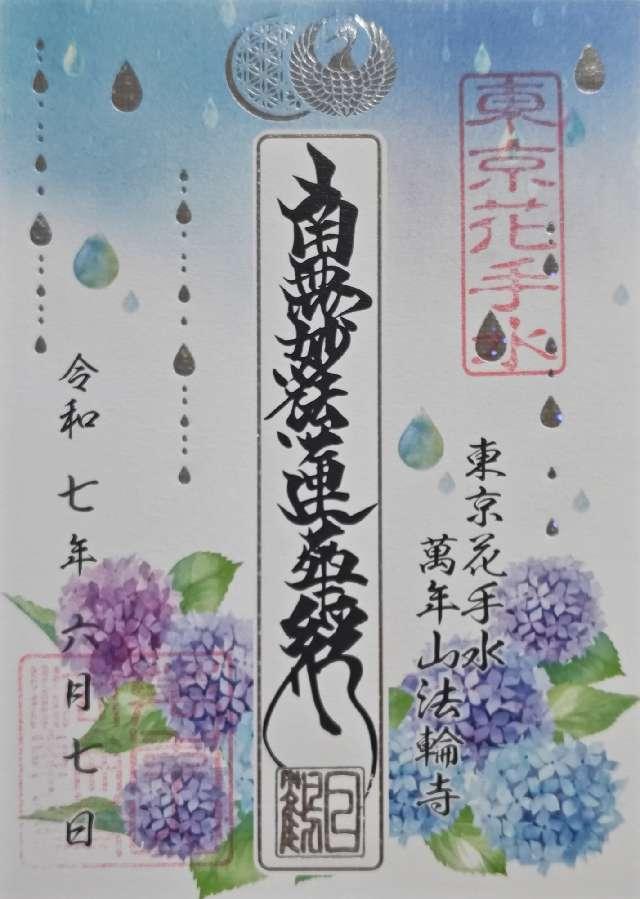 東京花手水
東京花手水
萬年山法輪寺
南無妙法蓮華経
令和七年六月七日